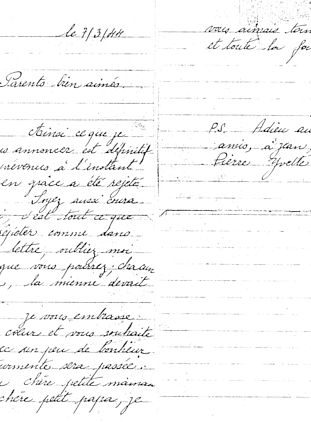 le 7/3/44
Parents bien aimés.
Ainsi ce que je
us annoncer est définitif
prévenus à l'instant
en grâce a été rejeté.
Soyez aussi coura
, c'est tout ce que
répéter comme dans
lettre, oubliez moi
que vous pourrez, chacun
, la mienne devait
je vous embrasse
cœur et vous souhaite
ec un peu de bonheur
tourmente sera passée.
chère petite maman
chère petit papa, je
vous aimais
et toute la
PS. Adieu au
amis, à Jean,
Pierre Yvette